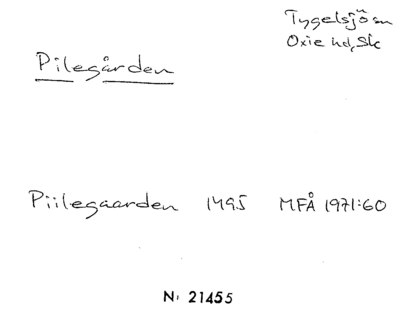 Tygelsjö sn
Oxie hd, Sk
Pilegården
Piilegaarden 1495 MFÅ 1971:60
N: 21455